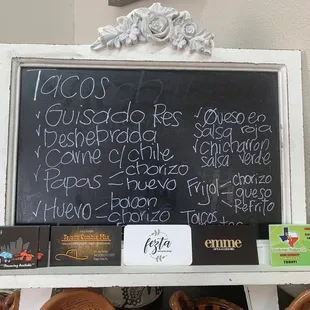 Tacos
✓Guisado Res
✓Deshebrada
✓Carne c/chile
✓Papas = chorizo
huevo
✓Huevo = bacon
chorizo
✓Queso en
salsa roja
✓Chicharron
salsa verde
Frijol = chorizo
queso
Refrito
fezta
emme